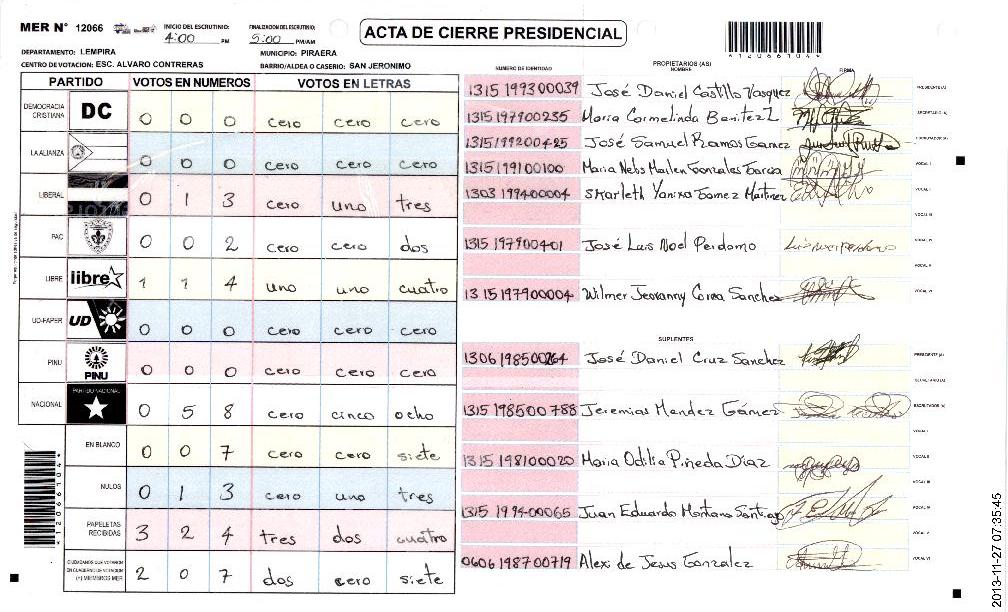 MER N° 12066
INICIO DEL ESCRUTINIO: 4:00 PM
FINALIZACION DEL ESCRUTINIO: 5:00 PM/AM
ACTA DE CIERRE PRESIDENCIAL
*12066104*
DEPARTAMENTO: LEMPIRA
MUNICIPIO: PIRAERA
CENTRO DE VOTACION: ESC. ALVARO CONTRERAS
BARRIO/ALDEA O CASERIO: SAN JERONIMO
PARTIDO VOTOS EN NUMEROS VOTOS EN LETRAS
DEMOCRACIA CRISTIANA DC 0 0 0 cero cero cero
LA ALIANZA 0 0 0 cero cero cero
LIBERAL 0 1 3 cero uno tres
PAC 0 0 2 cero cero dos
LIBRE libre 1 1 4 uno uno cuatro
UD-FAPER UD 0 0 0 cero cero cero
PINU PINU 0 0 0 cero cero cero
NACIONAL PARTIDO NACIONAL 0 5 8 cero cinco ocho
EN BLANCO 0 0 7 cero cero siete
NULOS 0 1 3 cero uno tres
PAPELETAS RECIBIDAS 3 2 4 tres dos cuatro
CIUDADANOS QUE VOTARON EN CUADERNO DE VOTACION (+) MIEMBROS MER 2 0 7 dos cero siete
*12066104*
NUMERO DE IDENTIDAD
PROPIETARIOS (AS)
NOMBRE
FIRMA
1315 199300039 José Daniel Castillo Vasquez PRESIDENTE (A)
1315197900235 Maria Carmelinda Benitez L SECRETARIO (A)
1315199200425 José Samuel Ramos Gamez ESCRUTADOR (A)
1315199100100 Maria Nelys Mailen Gonzales Garcia VOCAL I
1303 199400004 Skarleth Yanixa Gomez Martinez VOCAL II
VOCAL III
1315 197900401 José Luis Noel Perdomo VOCAL IV
VOCAL V
1315197900004 Wilmer Jeovanny Corea Sanchez VOCAL VI
SUPLENTES
1306198500264 José Daniel Cruz Sanchez PRESIDENTE (A)
SECRETARIO (A)
1315 198500788 Jeremias Mendez Gámez ESCRUTADOR (A)
VOCAL I
1315 198100020 Maria Odilia Piñeda Díaz VOCAL II
VOCAL III
1315 199400065 Juan Eduardo Montano Santiago VOCAL IV
VOCAL V
0606198700719 Alex de Jesus Gonzalez VOCAL VI
2013-11-27 07:35:45